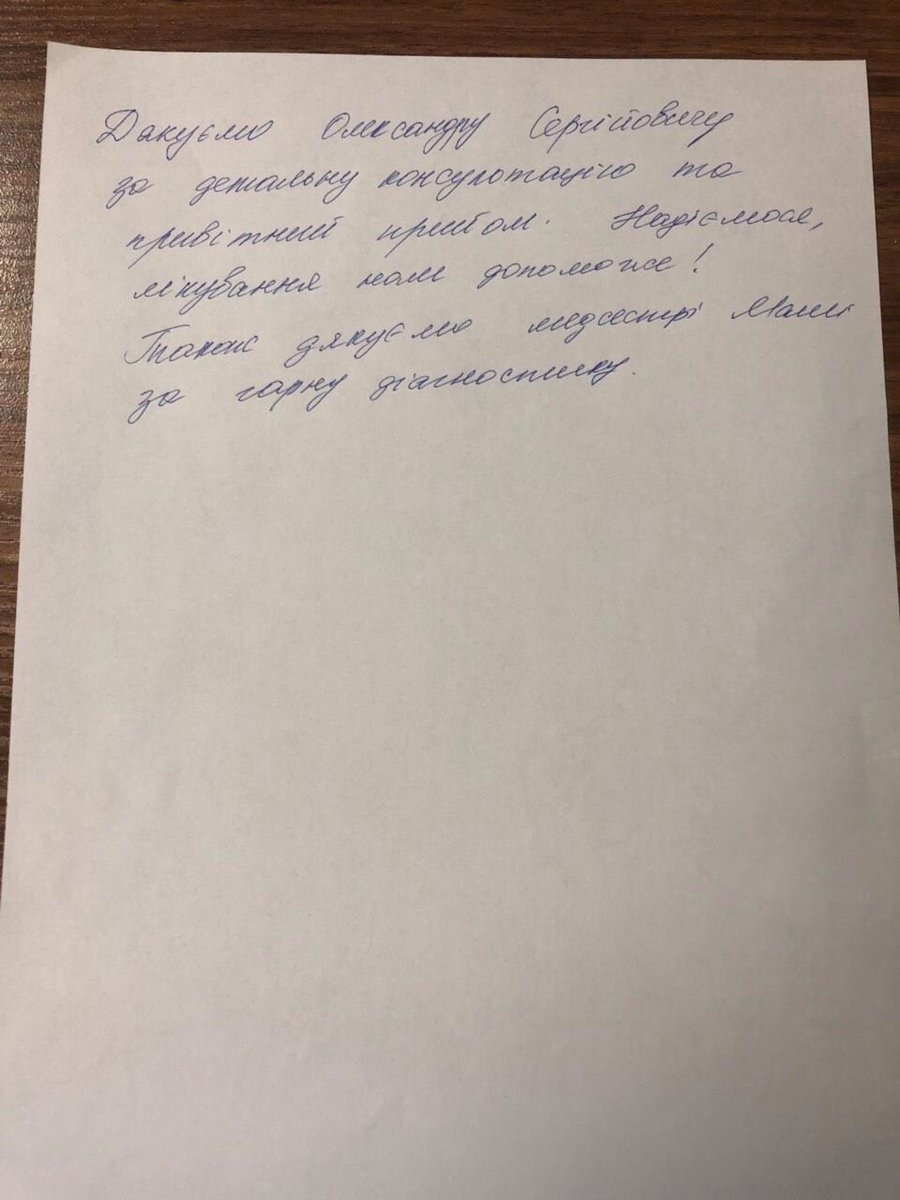 Дякуємо Олександру Сергійовичу
за детальну консультацію та
привітний прийом. Надіємося,
лікування нам допоможе!
Також дякуємо медсестрі Маші
за гарну діагностику.